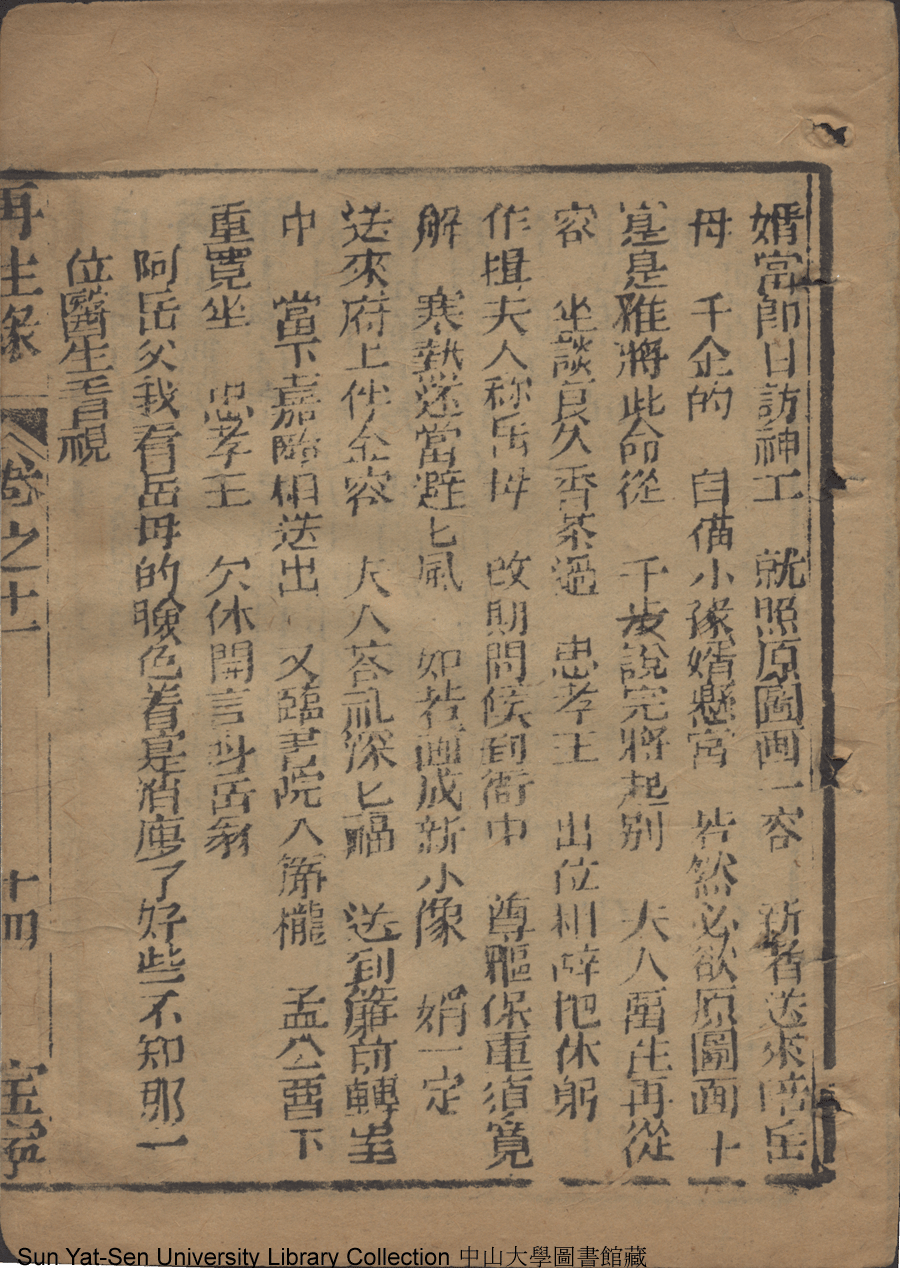 婿當即日訪神工　就照原圖画一容　新者送來暗岳
母　千金的　自偹小像婿懸宮　若然必欲原圖画　十
是雅將此命從　千歲說完將起别　夫人萬生再從
容　坐談良久香茶過　忠孝王　出位相辞把休躬
作揖夫人称岳母　改期問候到衙中　尊軀保重須寬
解　寒熱還當避匕風　如若画成新小像　婿一定
送來府上伴金容　夫人答礼深匕福　送到簾前轉
中　當下嘉隣相送出　又臨書院入簾櫳　孟公酉下
重寬坐　忠孝王　欠休開言叫岳翁
阿岳父我看岳母的臉色着寔消廋了好些不知那一
位醫生看視
再生緣　卷之十一　十四　宝寕
Sun Yat-Sen University Library Collection 中山大學圖書館藏